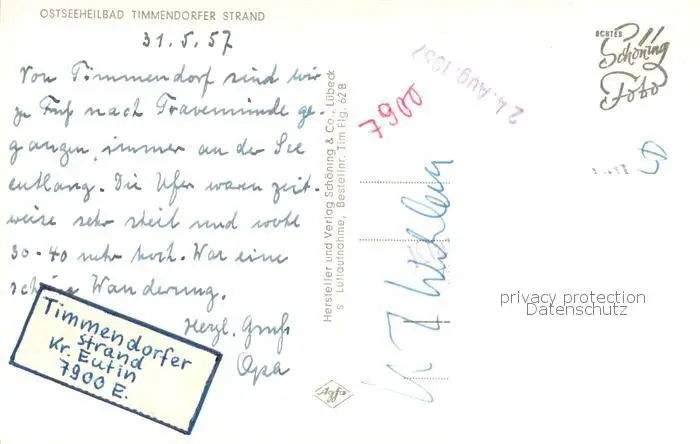 OSTSEEHEILBAD TIMMENDORFER STRAND
31.5.57
Von Timmendorf sind wir
zu Fuß nach Travemünde ge-
gangen, immer an der See
entlang. Die Ufer waren zeit-
weise sehr steil und wohl
30-40 mtr hoch. War eine
schöne Wanderung.
Herzl. Gruß
Opa
Timmendorfer
Strand
Kr. Eutin
7900 E.
Hersteller und Verlag Schöning & Co., Lübeck
s Luftaufnahme, Bestellnr. Tim Flg. 62 B
Agfa
7900
24. Aug. 1957
ECHTES
Schöning
Foto
privacy protection
Datenschutz